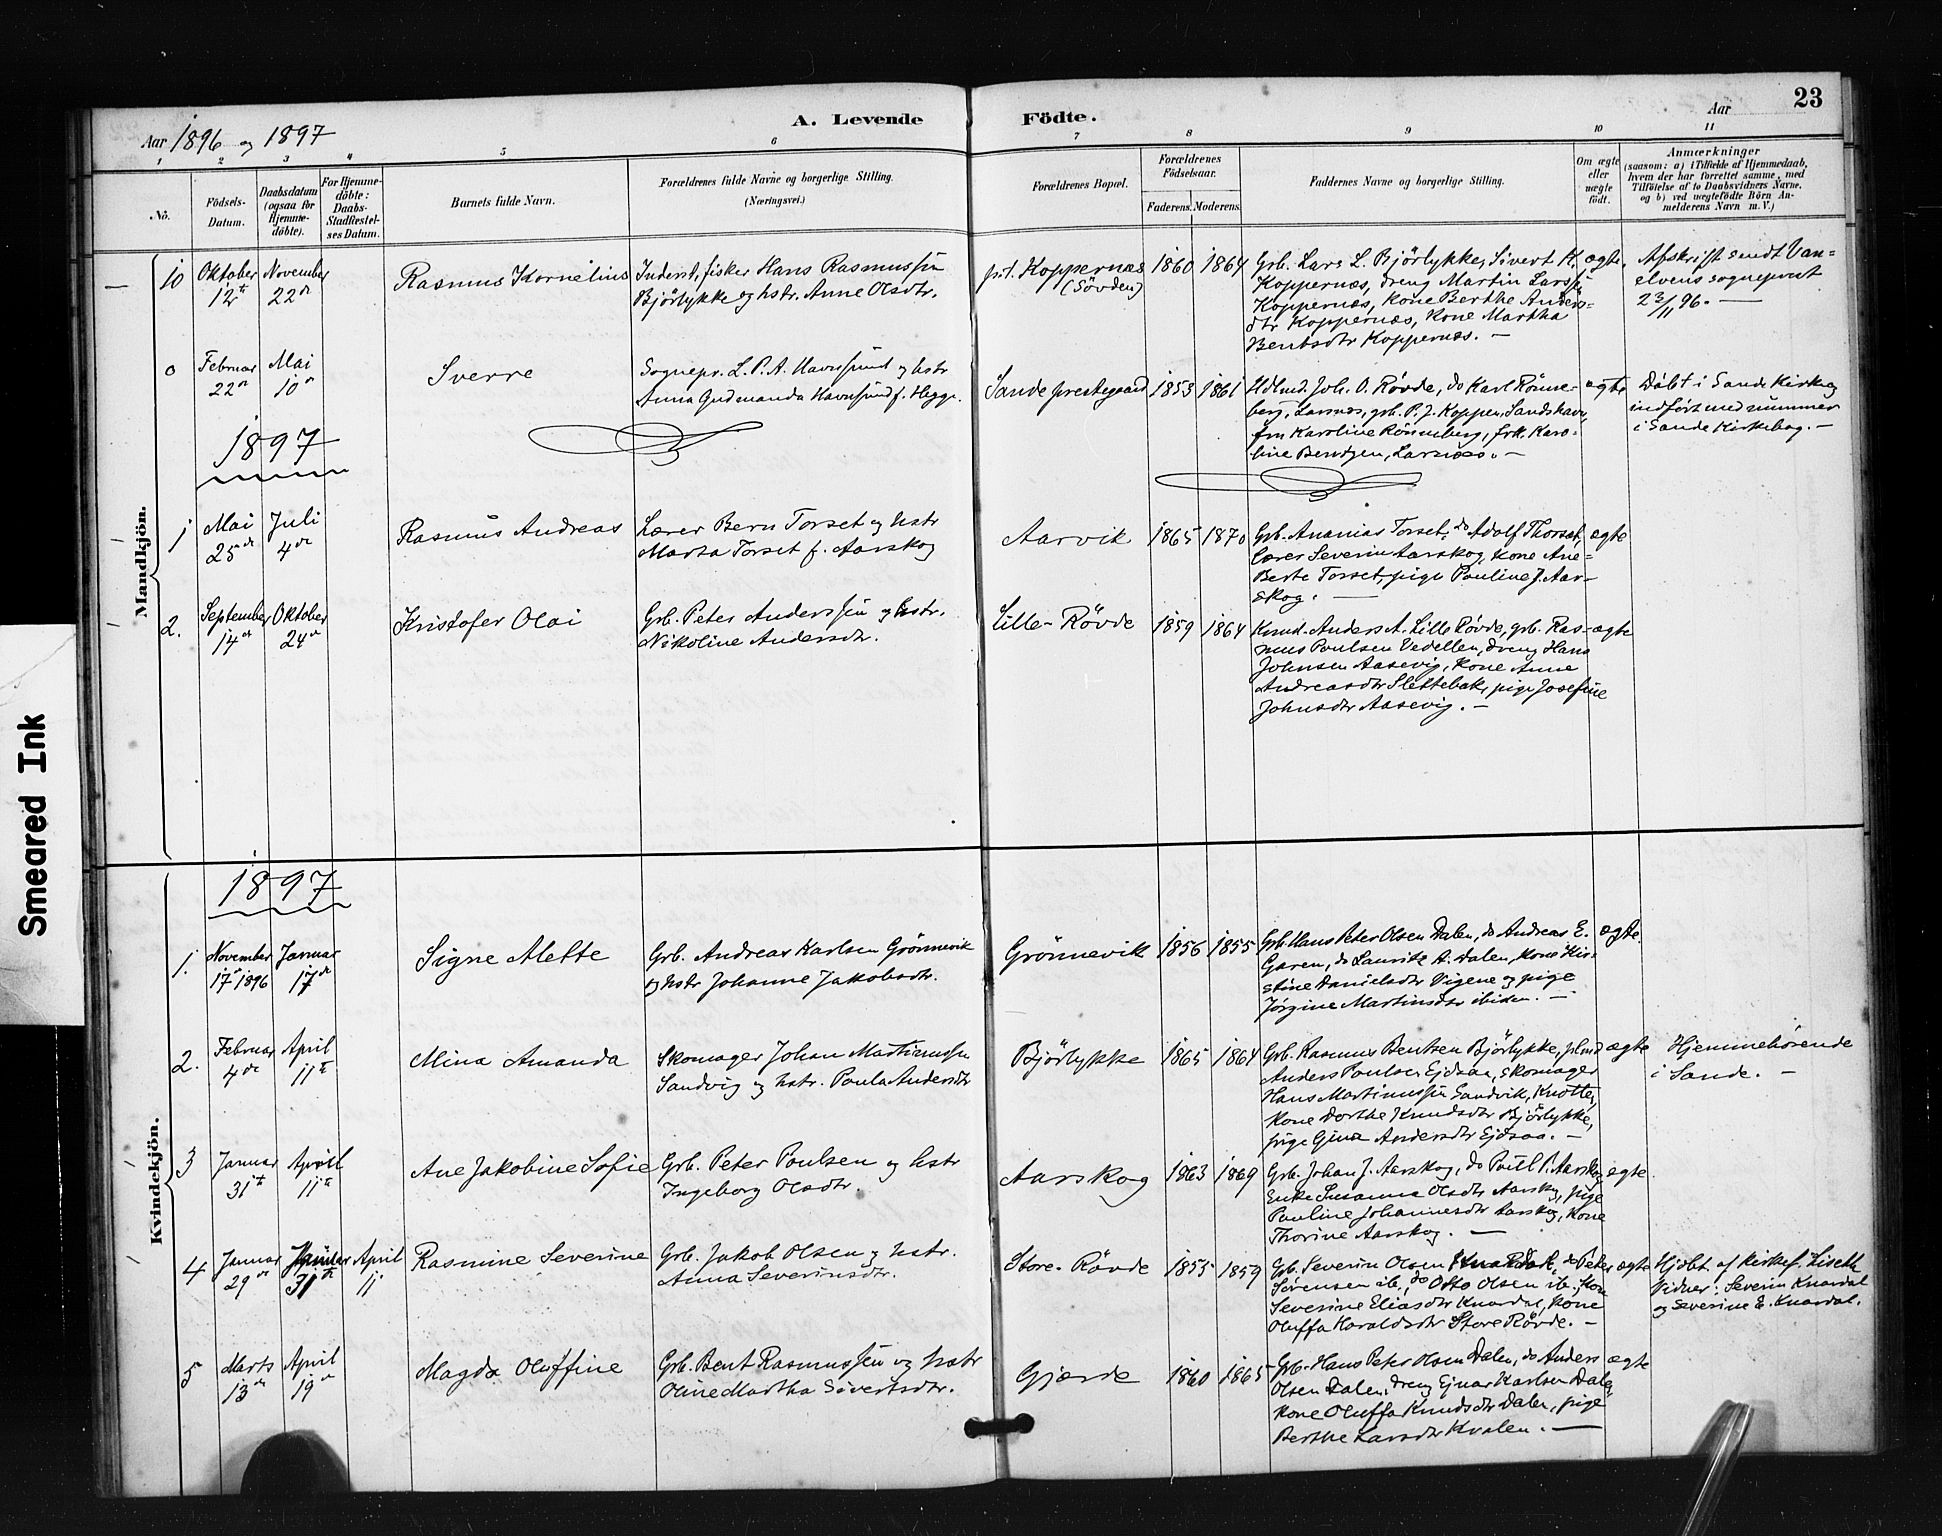 23
Aar 1896 og 1897
A. Levende Födte.
Aar
1 2 3 4 5 6 7 8 9 10 11
No.
Födsels-
Datum.
Daabsdatum
(ogsaa for
Hjemme-
döbte).
For Hjemme-
döbte:
Daabs-
Stadfæstel-
ses Datum.
Barnets fulde Navn.
Forældrenes fulde Navne og borgerlige Stilling.
(Næringsvei.)
Forældrenes Bopæl.
Forældrenes
Födselsaar.
Faderens. Moderens.
Faddernes Navne og borgerlige Stilling.
Om ægte
eller
uægte
födt.
Anmærkninger
(saasom: a) i Tilfælde af Hjemmedaab,
hvem der har forrettet samme, med
Tilföielse af to Daabsvidners Navne,
og b) ved uægtefödte Börn An-
melderens Navn m. V.)
Mandkjön.
10
Oktober
12te
November
22de
Rasmus Kornelius
Inderst, fisker Hans Rasmussen
Bjørlykke og hstr. Anne Olsdtr.
pt. Koppernæs
(Søvden)
1860 1864
Grb. Lars L. Bjørlykke, Sivert K.
Koppernæs, dreng Martin Larssen
Koppernæs, kone Berthe Anders-
dtr Koppernæs, kone Martha
Bentsdtr Koppernæs. —
ægte
Afskrift sendt Van-
elvens sogneprest
23/11 96. —
0
Februar
22de
Mai
10de
Sverre
Sognepr. L. P. A. Havnsund og hstr
Anna Gudmanda Havnsund f. Hegge.
Sande prestegaard
1853 1861
Hdlmd. Joh. O. Røvde, do Karl Rønne-
berg, Larsnæs, grb. P. J. Koppen, Sandshavn,
fru Karoline Rønneberg, frk. Karo-
line Bendzen, Larsnæs. —
ægte
Døbt i Sande Kirke og
indført med nummer
i Sande Kirkebog. —
1897
1
Mai
25de
Juli
4de
Rasmus Andreas
Lærer Bern Torset og hstr
Marta Torset f. Aarskog
Aarvik
1865 1870
Grb. Ananias Torset, do Adolf Thorset,
lærer Severin Aarskog, kone Ane-
Berte Torset, pige Pauline J. Aar-
skog. —
ægte
2.
September
14de
Oktober
24de
Kristofer Olai
Grb. Peter Anderssen og hstr.
Nikoline Andersdtr.
Lille-Røvde
1859 1864
Kmd. Anders A. Lille Røvde, grb. Ras-
mus Poulsen Vedellen, dreng Hans
Johnsen Aasevig, kone Anne
Andreasdtr Slettebak, pige Josefine
Johnsdtr Aasevig. —
ægte
Kvindekjön.
1897
1.
November
17de 1896
Januar
17de
Signe Alette
Grb. Andreas Karlsen Grønnevik
og hstr Johanne Jakobsdtr.
Grønnevik
1856 1855
Grb. Hans Peter Olsen Dalen, do Andreas E.
Garen, do Lauritz A. Dalen, kone Kir-
stine Danielsdtr Vigene og pige
Jørgine Martinsdtr ibiden. —
ægte.
2.
Februar
4de
April
11te
Mina Amanda
Skomager Johan Martinussen
Sandvig og hstr. Paula Andersdtr
Bjørlykke
1865 1864
Grb. Rasmus Bentsen Bjørlykke, plmd
Anders Poulsen Ejdsaa, skomager
Hans Martinussen Sandvik, Knotte,
kone Dorthe Knudsdtr Bjørlykke,
pige Gina Andersdtr Ejdsaa. —
ægte
Hjemmehørende
i Sande. —
3
Januar
31te
April
11te
Ane Jakobine Sofie
Grb. Peter Poulsen og hstr
Ingeborg Olsdtr.
Aarskog
1863 1869
Grb. Johan J. Aarskog, do Poul P. Aarskog
Enke Susanna Olsdtr Aarskog, pige
Pauline Johannesdtr Aarskog, kone
Thorine Aarskog. —
ægte.
4
Januar
29de
Januar
31te
April
11
Rasmine Severine
Grb. Jakob Olsen og hstr.
Anna Severinsdtr.
Store-Røvde
1855 1859
Grb. Severin Olsen Knardal, do Peter
Sørensen ib., do Otto Olsen ib., kone
Severine Eliasdtr Knardal, kone
Oluffa Haraldsdtr Store Røvde. —
ægte
Hjdbt af kirkes. Liseth
Vidner: Severin Knardal
og Severine E. Knardal.
5
Marts
13de
April
19de
Magda Oluffine
Grb. Bent Rasmussen og hstr
Oline Martha Sivertsdtr.
Gjærde
1860 1865
Grb. Hans Peter Olsen Dalen, do Anders
Olsen Dalen, dreng Ejnar Karlsen Dale,
kone Oluffa Knudsdtr Dalen, pige
Berthe Larsdtr Kvalen. —
ægte
Smeared Ink